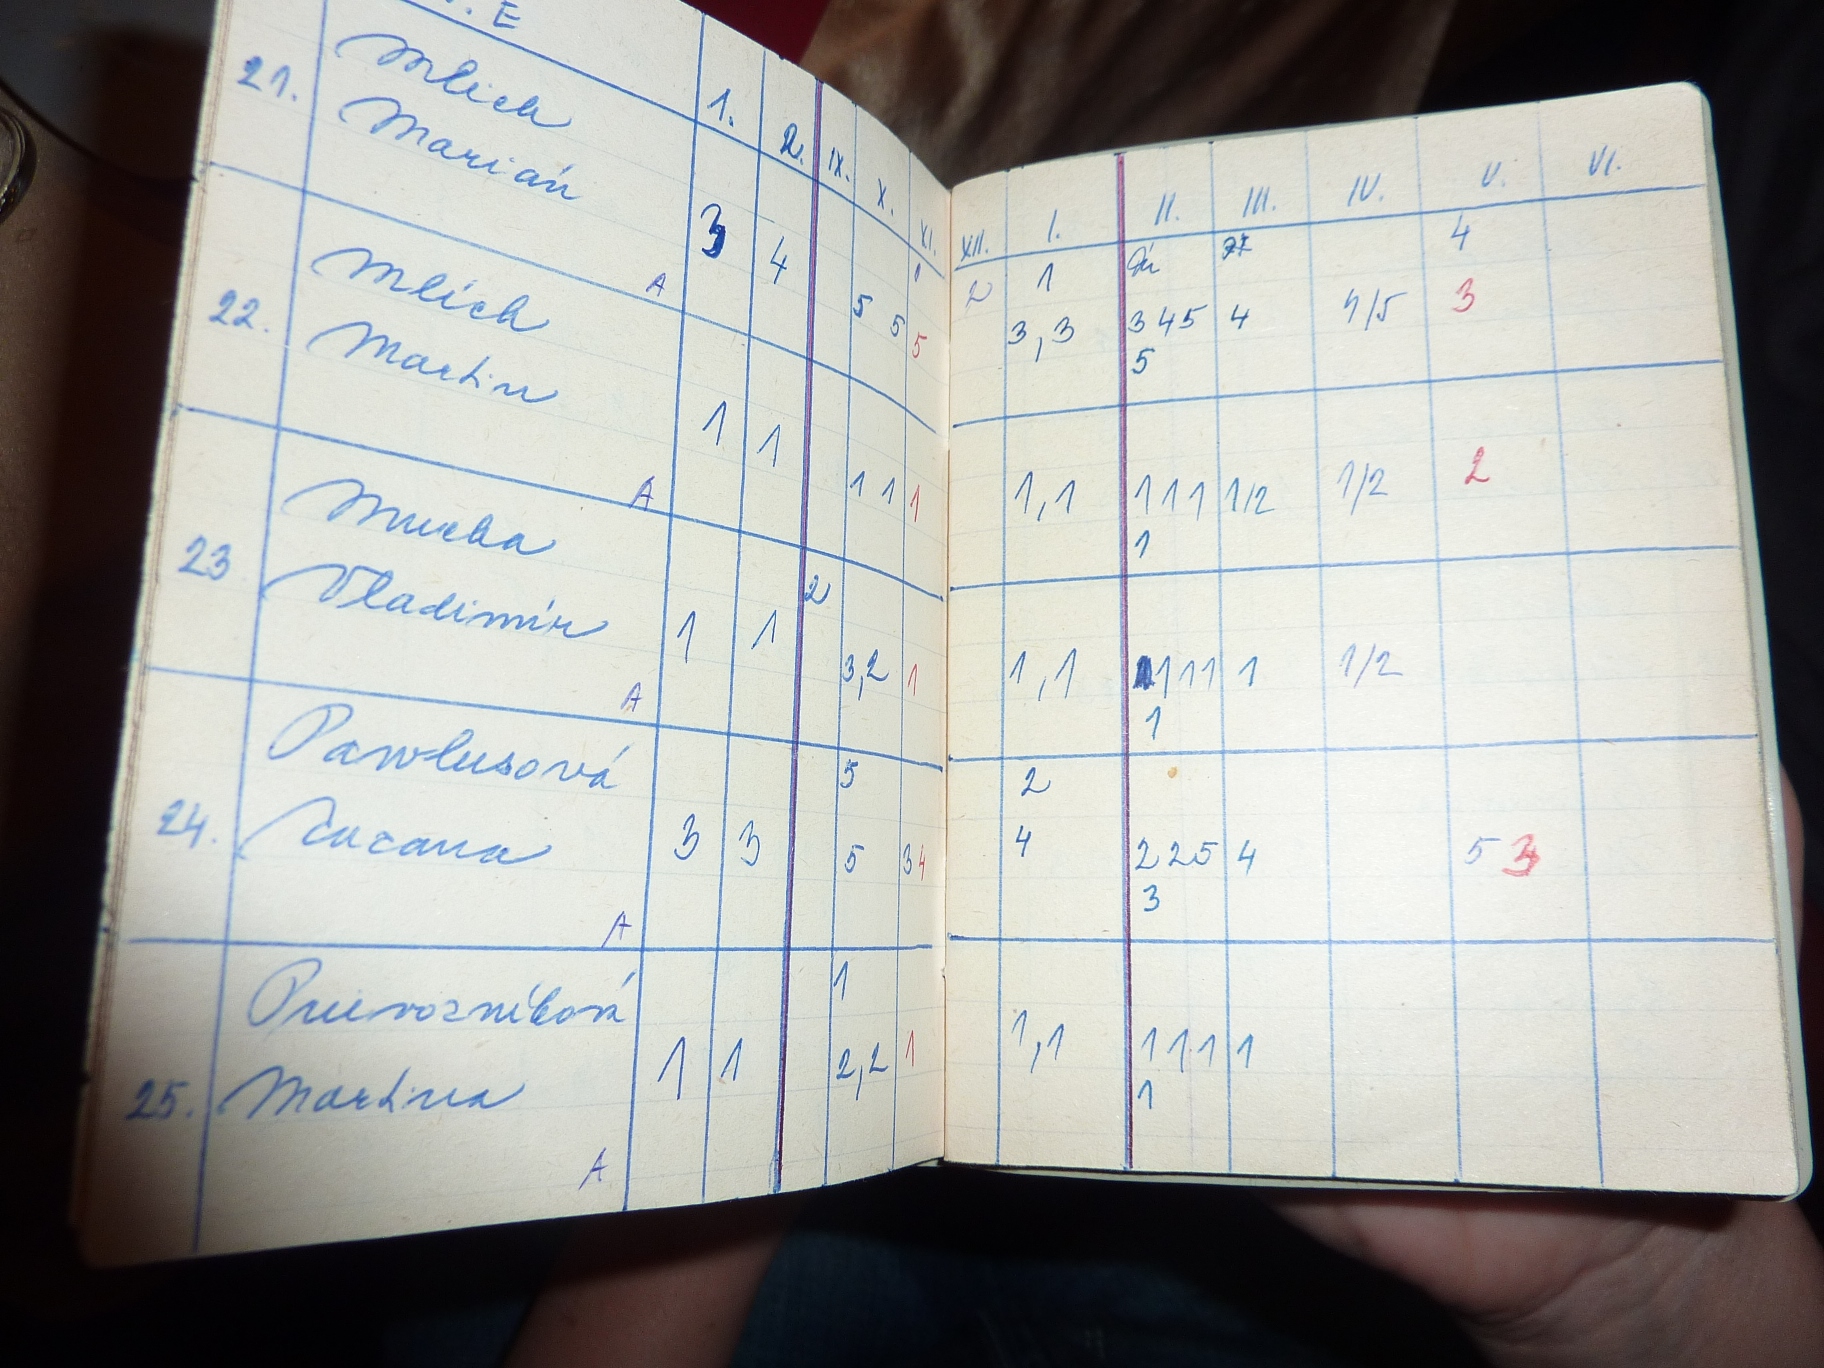 E
1. 2. IX. X. XI. XII. I. II. III. IV. V. VI.
21. Mlich 1 4
Marián 3 4 2 1
A 5 5 5 3,3 3 4 5 4 4/5 3
5
22. Mlich
Martin 1 1
A 1 1 1 1,1 1 1 1 1/2 1/2 2
1
23 Mucha 2
Vladimír 1 1
A 3,2 1 1,1 1 1 1 1 1/2
1
24. Pawlusová 5 2
Zuzana 3 3 5 3 4 4 2 2 5 4 5 3
A 3
25. Prievozníková 1
Martina 1 1 2,2 1 1,1 1 1 1 1
A 1